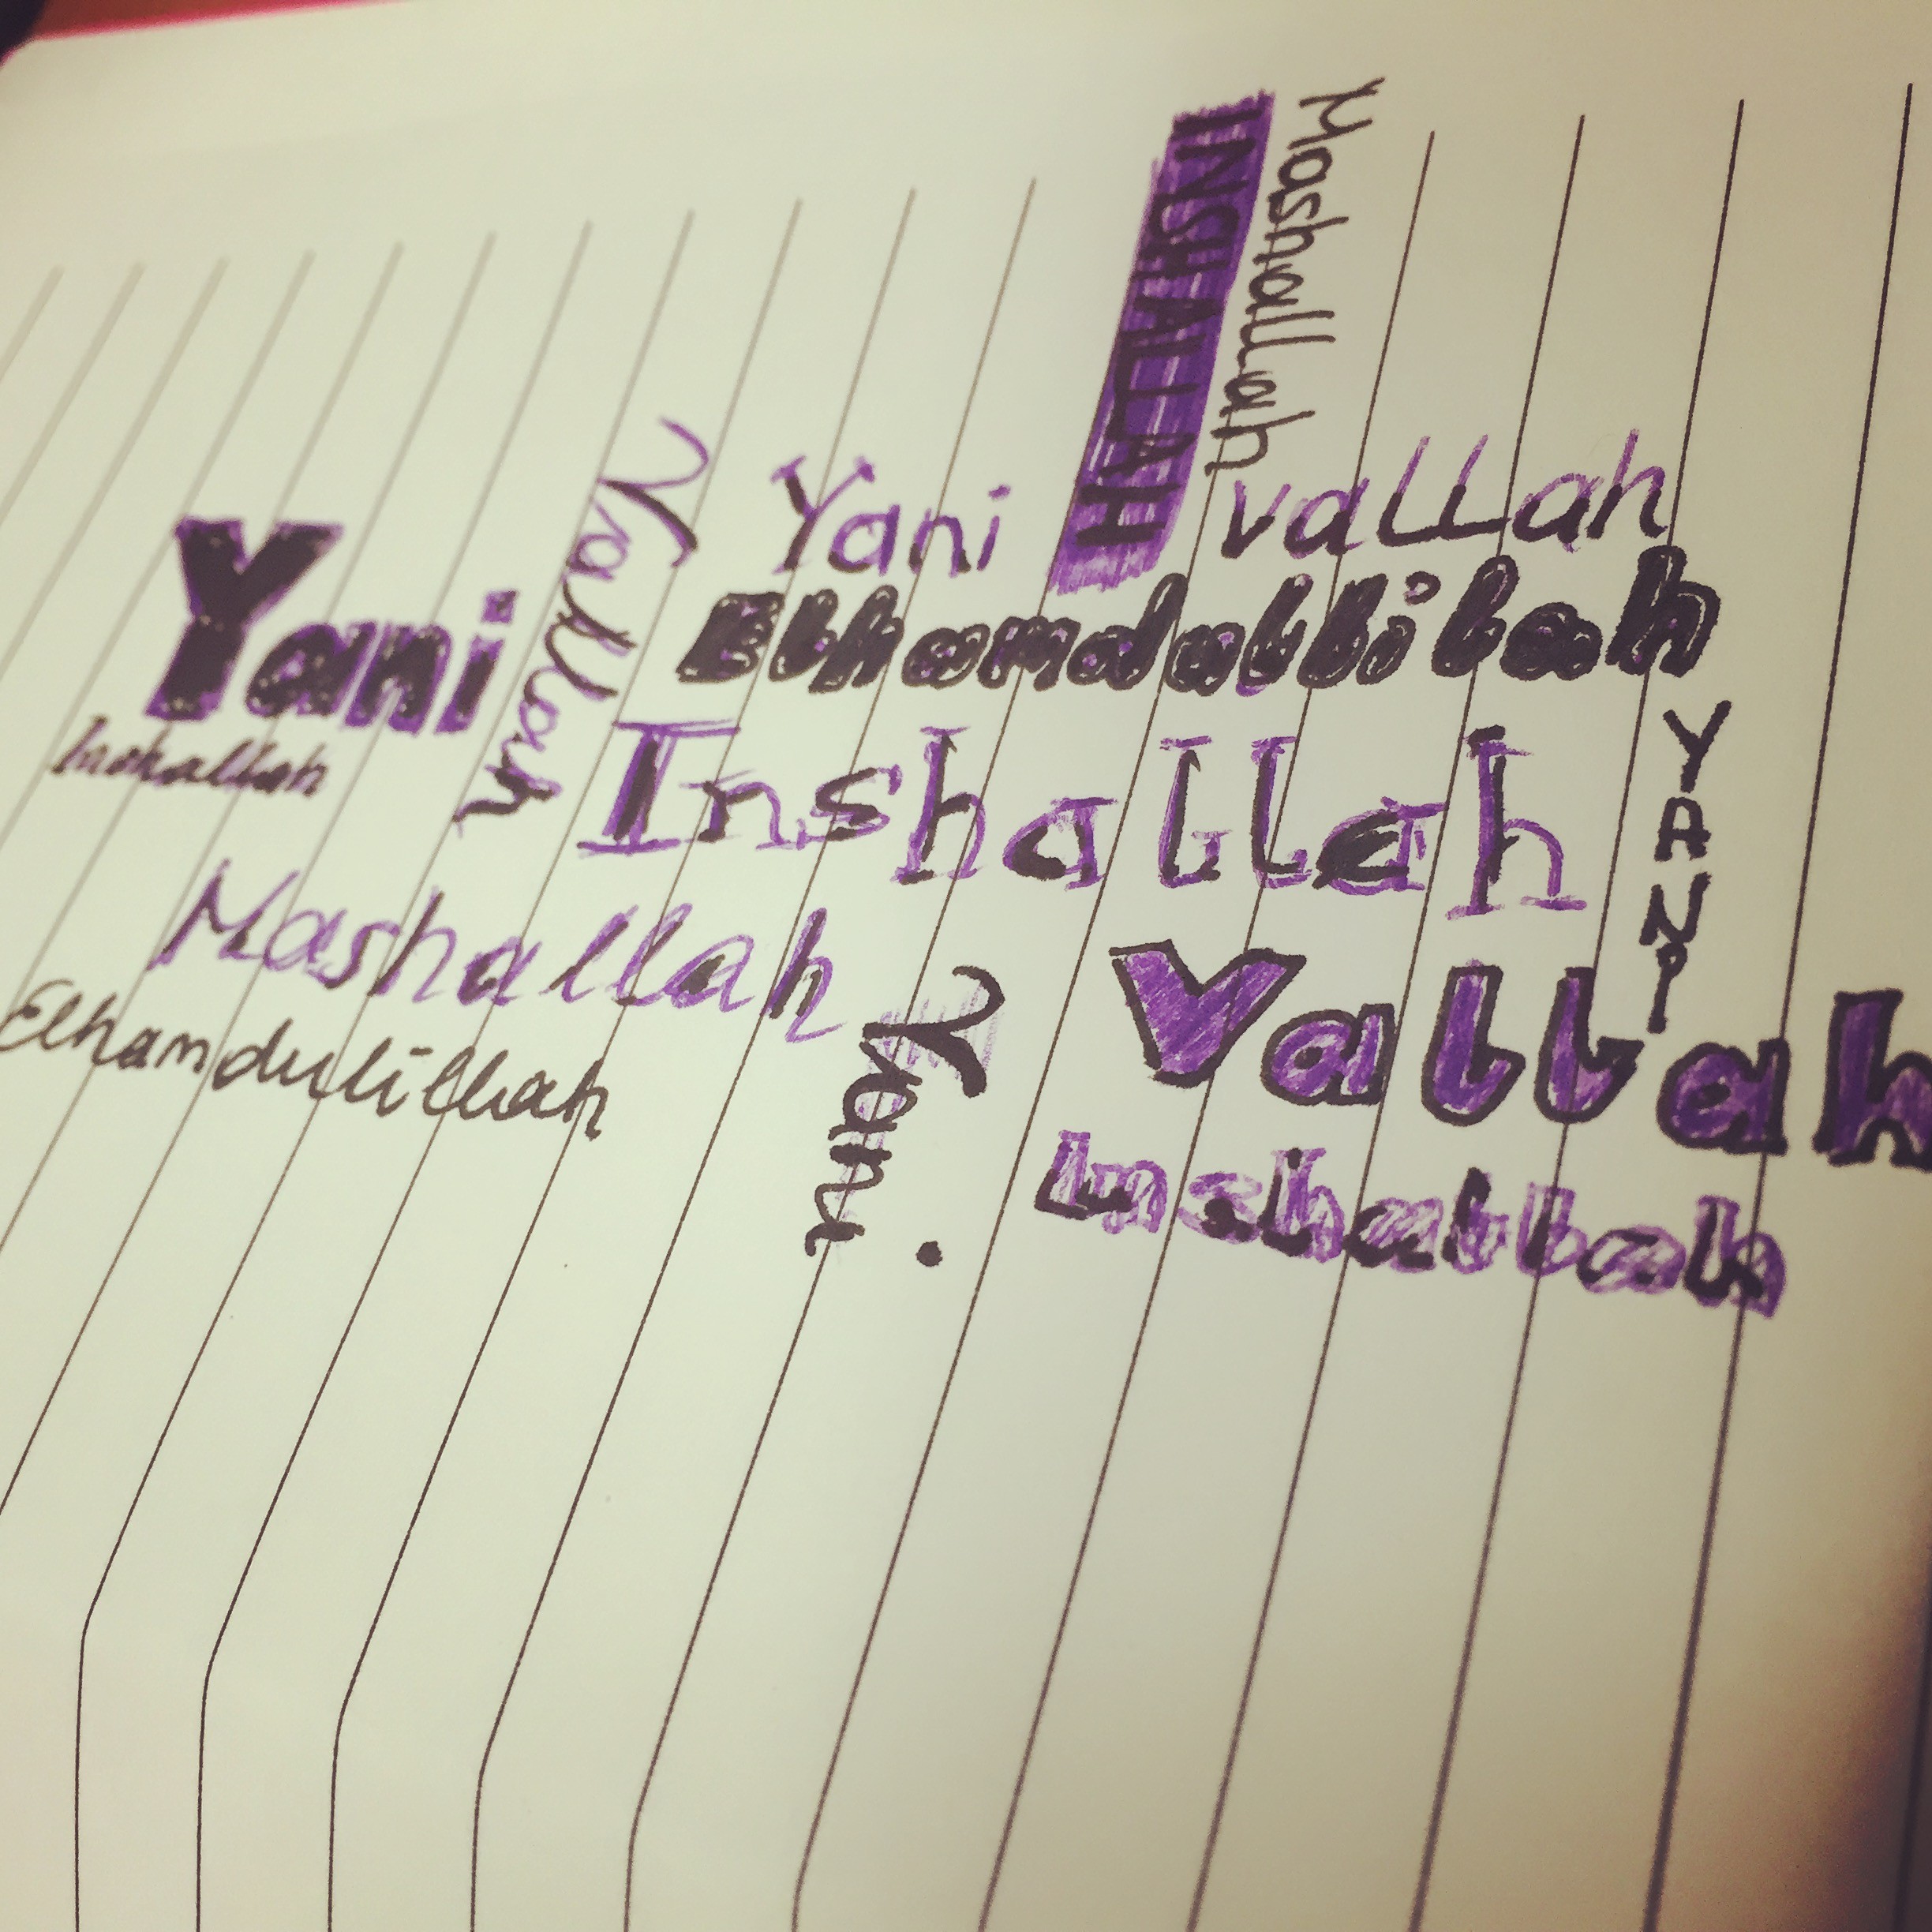 Mashallah
INSHALLAH
Yani
vallah
Vallah
Yani
Elhamdullilah
Inshallah
Inshallah
YANI
Mashallah
Vallah
Elhamdulillah
Yani
Inshallah